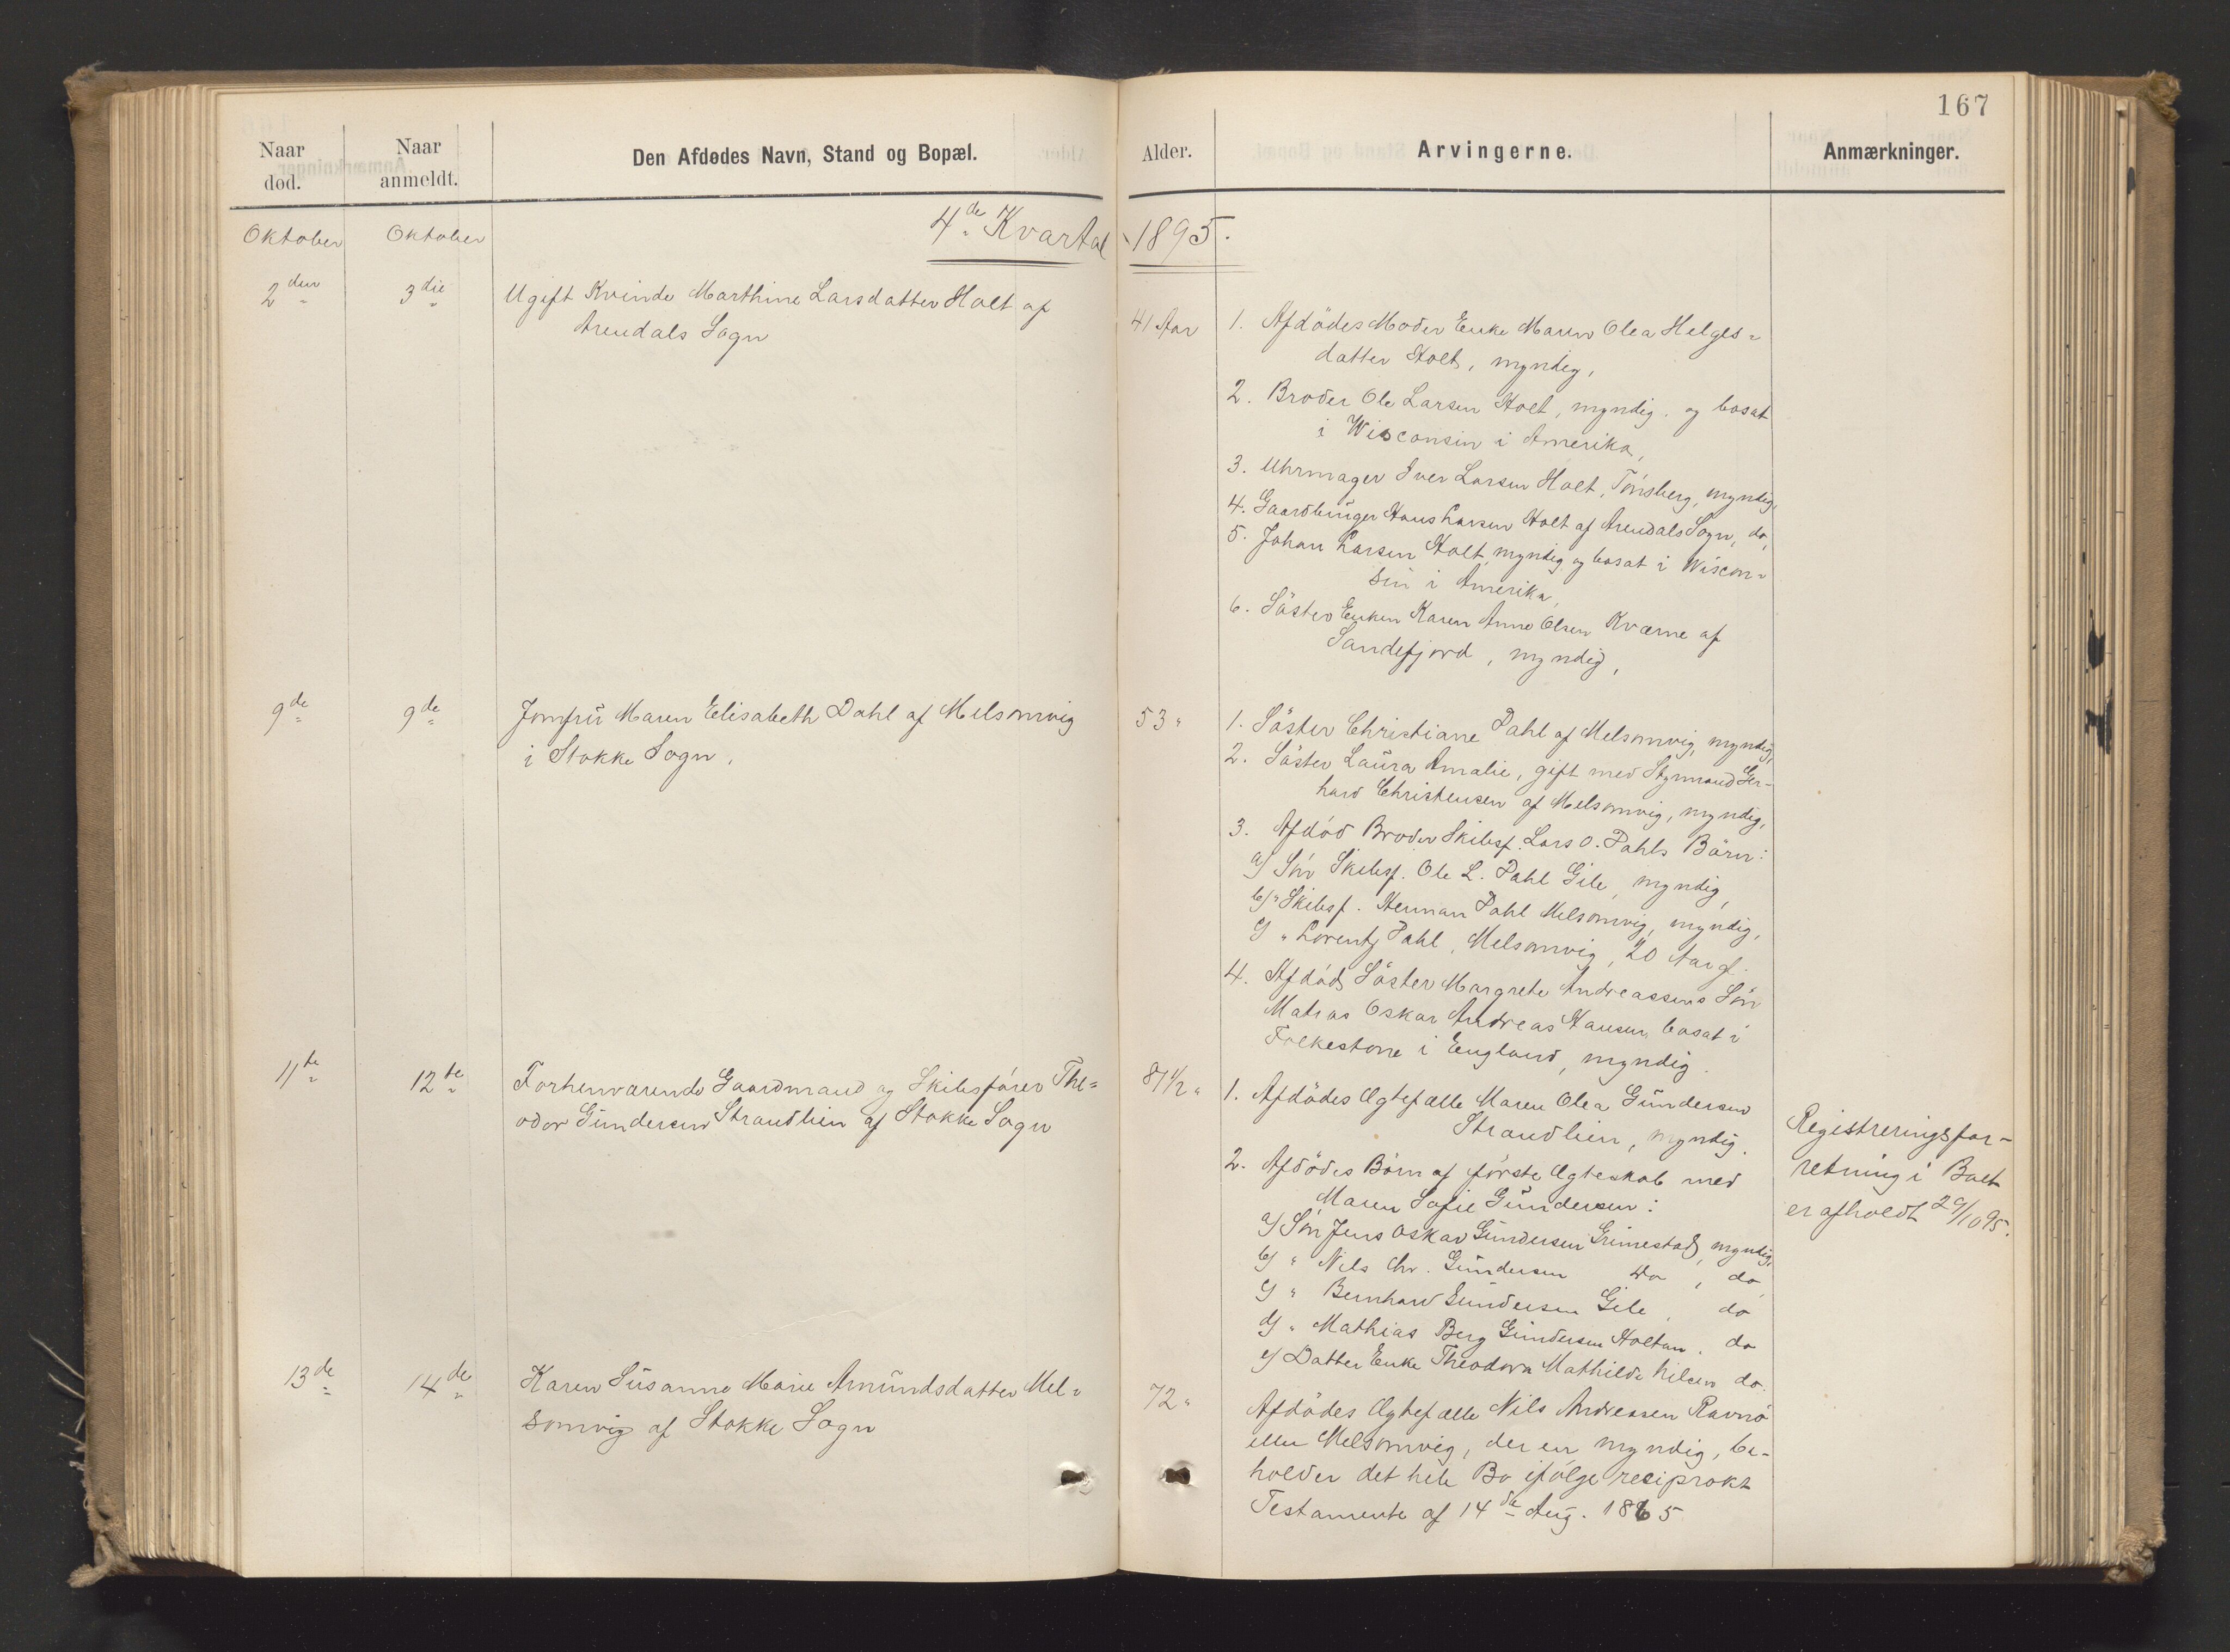 167
Naar død.
Naar anmeldt.
Den Afdødes Navn, Stand og Bopæl.
Alder.
Arvingerne.
Anmærkninger.
Oktober
Oktober
4de Kvartal 1895.
2den
3die
Ugift Kvinde Marthine Larsdatter Holt af
Arendals Sogn
41 Aar
1. Afdödes Moder Enke Maren Olea Helges=
datter Holt, myndig,
2. Broder Ole Larsen Holt, myndig og bosat
i Wisconsin i Amerika,
3. Uhrmager Iver Larsen Holt, Tönsberg, myndig,
4. Gaardbruger Hans Larsen Holt af Arendals Sogn, do,
5. Johan Larsen Holt myndig og bosat i Wiscon=
sin i Amerika,
6. Söster Enken Karen Anne Olsen Kværne af
Sandefjord, myndig,
9de
9de
Jomfru Maren Elisabeth Dahl af Melsomvig
i Stokke Sogn.
53 "
1. Söster Christiane Dahl af Melsomvig, myndig,
2. Söster Laura Amalie, gift med Styrmand Ger-
hard Christensen af Melsomvig, myndig,
3. Afdöd Broder Skibsf. Lars O. Dahls Börn:
a) Sön Skibsf. Ole L. Dahl Gile, myndig,
b) " Skibsf. Herman Dahl Melsomvig, myndig,
c) " Lorentz Dahl, Melsomvig, 20 Aar gl.
4. Afdöds Söster Margrete Andreassens Sön
Matros Oskar Andreas Hansen, bosat i
Folkestone i England, myndig.
11te
12te
Forhenværende Gaardmand og Skibsförer The=
odor Gundersen Strandlien af Stokke Sogn
81 1/2 "
1. Afdödes Ægtefælle Maren Olea Gundersen
Strandlien, myndig.
2. Afdödes Börn af förste Ægteskab med
Maren Sofie Gundersen:
a) Sön Jens Oskar Gundersen Grimestad, myndig,
b) " Nils Chr. Gundersen do, do
c) " Bernhard Gundersen Gile, do
d) " Mathias Berg Gundersen Holtan, do
e) Datter Enke Theodora Mathilde Nilsen do.
Registreringsfor-
retning i Boet
er afholdt 29/10 95.
13de
14de
Karen Susanne Marie Amundsdatter Mel=
somvig af Stokke Sogn
72 "
Afdödes Ægtefælle Nils Andreasen Ravnö
eller Melsomvig, der er myndig, be-
holder det hele Bo ifölge reciprokt
Testamente af 14de Aug. 1865